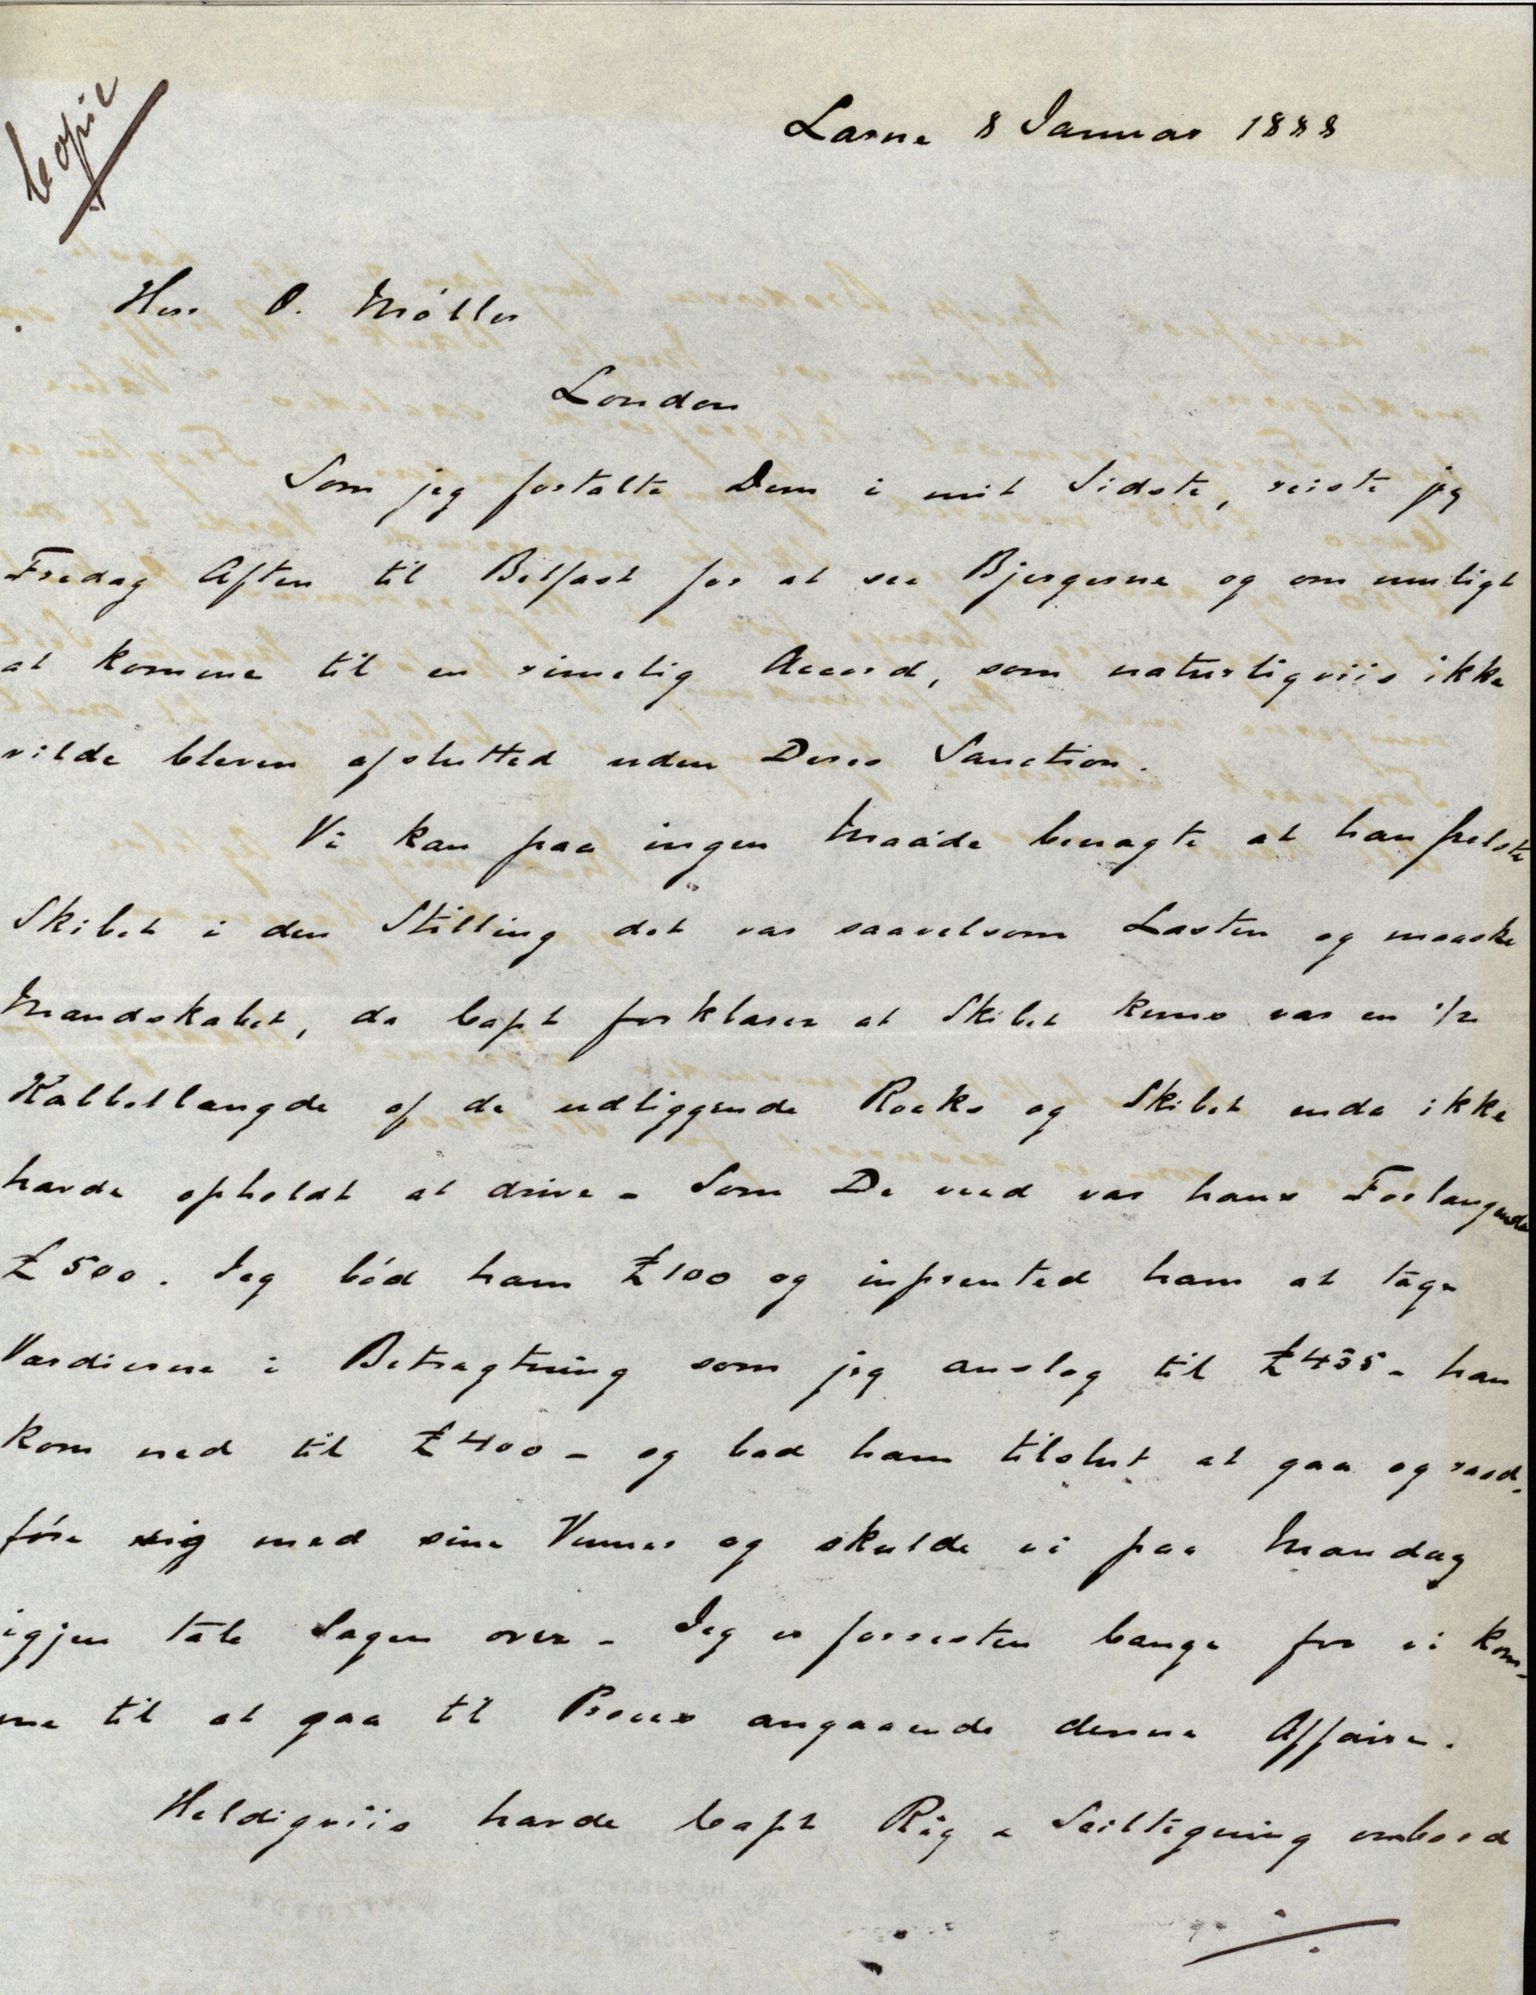 Copie
Larne 8 Januar 1888
Herr O. Møller
London
Som jeg fortalte Dem i mit Sidste, reiste jeg
Fredag Aften til Belfast for at see Bjergerne og om muligt
at komme til en rimelig Accord, som naturligviis ikke
vilde bleven afslutted uden Deres Sanction.
Vi kan paa ingen Maade benægte at han frelste
Skibet i den Stilling det var saavelsom Lasten og maaske
Mandskabet, da Capt forklarer at Skibet kuns var en 1/2
Kabbellængde af de udliggende Rocks og Skibet enda ikke
havde opholdt at drive - Som De veed var hans Forlangende
£ 500. Jeg bød ham £ 100 og inprented ham at tage
Værdierne i Betragtning som jeg anslog til £ 435 - han
kom ned til £ 400 - og bad ham tilslut at gaa og raad-
føre sig med sine Venner og skulde vi paa Mandag
igjen tale Sagen over - Jeg er forresten bange for vi kom-
me til at gaa til Proces angaaende denne Affaire.
Heldigviis havde Capt Rig & Seiltegning ombord